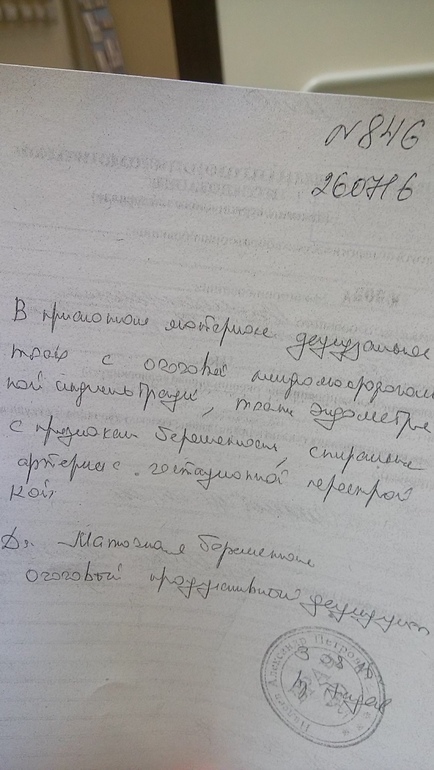 №846
260716
В присланном материале децидуальная
ткань с очаговой лимфолейкоцитар
ной инфильтрацией, ткань эндометрия
с признаками беременности, спиральные
артерии с гестационной перестрой
кой,
Дз. Маточная беременность
очаговый продуктивный децидуит
Александр Петрович